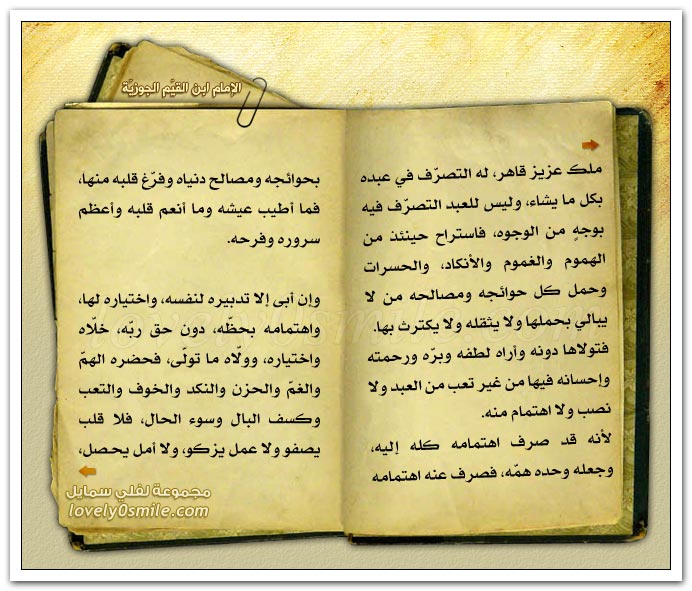 الإمام ابن القيّم الجوزيّة
ملك عزيز قاهر، له التصرّف في عبده
بكل ما يشاء، وليس للعبد التصرّف فيه
بوجهٍ من الوجوه، فاستراح حينئذ من
الهموم والغموم والأنكاد، والحسرات
وحمل كل حوائجه ومصالحه من لا
يبالي بحملها ولا يثقله ولا يكترث بها.
فتولاها دونه وأراه لطفه وبرّه ورحمته
وإحسانه فيها من غير تعب من العبد ولا
نصب ولا اهتمام منه.
لأنه قد صرف اهتمامه كله إليه،
وجعله وحده همّه، فصرف عنه اهتمامه
بحوائجه ومصالح دنياه وفرّغ قلبه منها،
فما أطيب عيشه وما أنعم قلبه وأعظم
سروره وفرحه.
وإن أبى إلا تدبيره لنفسه، واختياره لها،
واهتمامه بحظّه، دون حق ربّه، خلّاه
واختياره، وولّاه ما تولّى، فحضره الهمّ
والغمّ والحزن والنكد والخوف والتعب
وكسف البال وسوء الحال، فلا قلب
يصفو ولا عمل يزكو، ولا أمل يحصل،
مجموعة لفلي سمايل
lovely0smile.com